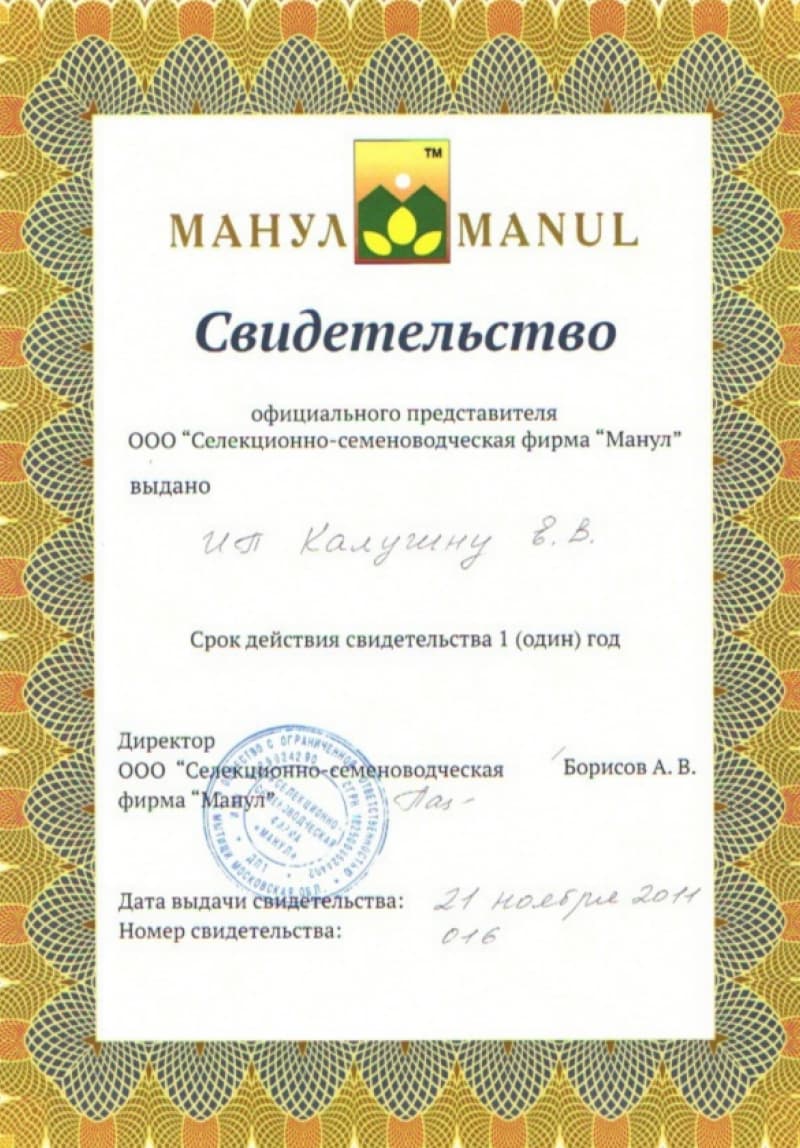 TM
МАНУЛ MANUL
Свидетельство
официального представителя
ООО “Селекционно-семеноводческая фирма “Манул”
выдано
ИП Калугину Е. В.
Срок действия свидетельства 1 (один) год
Директор
ООО “Селекционно-семеноводческая
фирма “Манул”
Борисов А. В.
ОБЩЕСТВО С ОГРАНИЧЕННОЙ ОТВЕТСТВЕННОСТЬЮ
МЫТИЩИ МОСКОВСКАЯ ОБЛ.
СЕЛЕКЦИОННО-
СЕМЕНОВОДЧЕСКАЯ
ФИРМА
«МАНУЛ»
Дата выдачи свидетельства: 21 ноября 2011
Номер свидетельства: 016